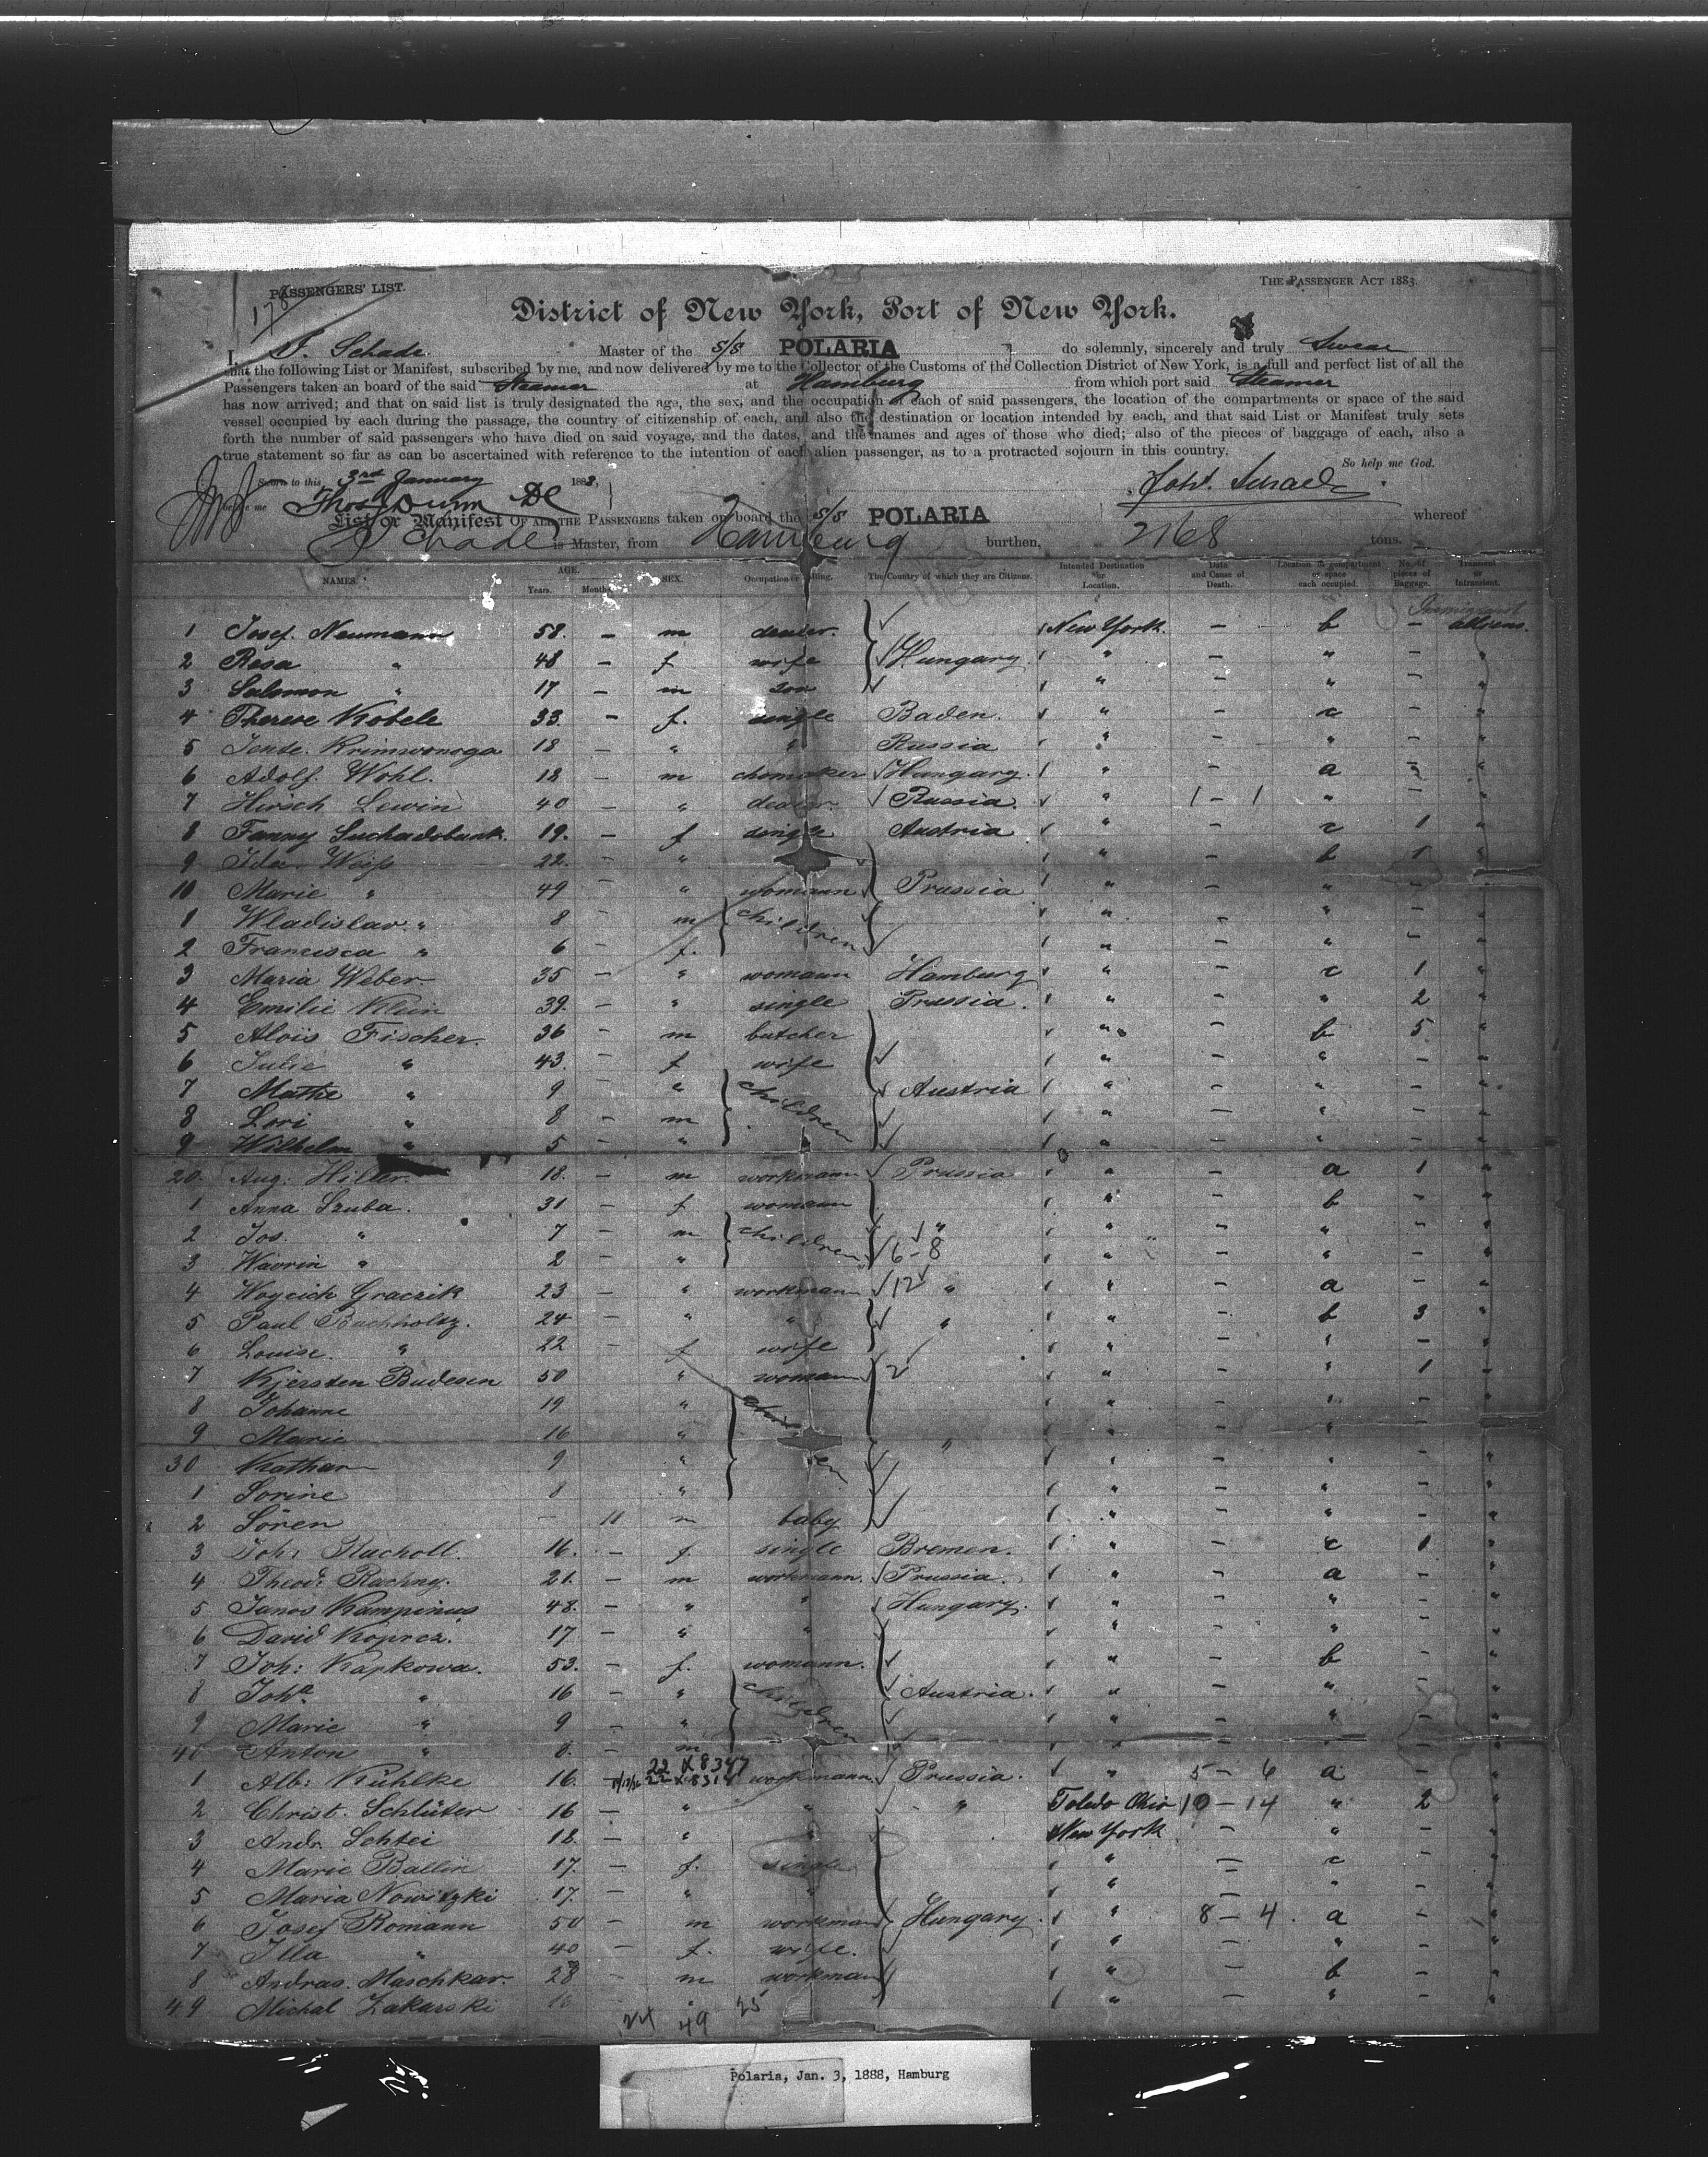 PASSENGERS' LIST.
178
THE PASSENGER ACT 1883.
District of New York, Port of New York.
I, J. Schade Master of the S/S POLARIA do solemnly, sincerely and truly Swear
that the following List or Manifest, subscribed by me, and now delivered by me to the Collector of the Customs of the Collection District of New York, is a full and perfect list of all the
Passengers taken an board of the said Steamer at Hamburg from which port said Steamer
has now arrived; and that on said list is truly designated the age, the sex, and the occupation of each of said passengers, the location of the compartments or space of the said
vessel occupied by each during the passage, the country of citizenship of each, and also the destination or location intended by each, and that said List or Manifest truly sets
forth the number of said passengers who have died on said voyage, and the dates, and the names and ages of those who died; also of the pieces of baggage of each, also a
true statement so far as can be ascertained with reference to the intention of each alien passenger, as to a protracted sojourn in this country.
So help me God.
Sworn to this 3rd January 1888,
before me Thos Dunn DC
List or Manifest OF ALL THE PASSENGERS taken on board the S/S POLARIA whereof
Schade is Master, from Hamburg burthen, 2168 tons.
NAMES. AGE. Years. Months. SEX. Occupation or Calling. The Country of which they are Citizens. Intended Destination or Location. Date and Cause of Death. Location of compartment or space each occupied. No. of pieces of Baggage. Transient or Intransient.
1 Josef Neumann 58. – m dealer. New York. – b –
2 Rosa " 48 – f wife Hungary. " – " – "
3 Salomon " 17 – m son " – " – "
4 Therese Kobele 33. – f. single Baden. " – c – "
5 Jente Krimwonoga 18 – " " Russia " – " – "
6 Adolf Wohl. 18 – m Hungary. " – a "
7 Hirsch Lewin 40 – " dealer. Russia. " 1 – 1 " – "
8 Fanny 19. – f single Austria " – c 1 "
9 Ida Weiss 22. – " " – b 1 "
10 Marie " 49 – " womann Prussia " – " – "
1 Wladislav " 8 – m children " – " – "
2 Francisca " 6 – f. " – " – "
3 Maria Weber 35 – " womann Hamburg " – c 1 "
4 Emilie Klein 39. – " single Prussia. " – " 2 "
5 Alois Fischer. 36 – m butcher " – b 5 "
6 Julie " 43. – f wife " – " – "
7 Mathe " 9 – " children Austria " – " – "
8 Lori " 8 – m " – " – "
9 Wilhelm " 5 – " " – " – "
20. Aug. Hiller. 18. – m workmann Prussia " – a 1 "
1 Anna Szuba. 31 – f womann " – b – "
2 Jos. " 7 – m children " " – " – "
3 Wavrin " 2 – " 6 – 8 " – " – "
4 Woycich Graczik 23 – " workmann 12 " " – a – "
5 Paul Buchholtz. 24 – " " " " – b 3 "
6 Louise. " 22 – f wife " – " – "
7 Kjersten Budesen 50 " womann 2 " – " 1 "
8 Johanne 19 " children " – " – "
9 Marie 16 " " " – " – "
30 Kathar 9 " " – " – "
1 Sorine 8 " " – " – "
2 Sören – 11 m baby " – " – "
3 Joh: Racholl. 16. – f. single Bremen. " – c 1 "
4 Theod: Rachny. 21. – m workmann. Prussia. " – a – "
5 Janos Kampinius 48. – " " Hungary. " – " – "
6 David 17 – " " " – " – "
7 Joh: Kapkowa. 53. – f. womann. " – b – "
8 Joha " 16 – " children Austria. " – " – "
9 Marie " 9 – " " – " – "
40 Anton " 8. – m " – " – "
22 X 8347
1 Alb: Kühlke 16. – 22 X 8314 workmann Prussia. " 5 – 6 a – "
2 Christ. Schlüter 16 – " " " Toledo Ohio 10 – 14 " 2 "
3 Andr. Schtei 18. – " " New York – " – "
4 Marie Ballin 17. – f. single " – c – "
5 Maria Nowitzki 17. – " " " – " – "
6 Josef Romann 50 – m workman Hungary. " 8 – 4. a – "
7 Illa " 40 – f. wife. " – " – "
8 Andras. Maschkar. 28 – m workman " – b – "
49 Michal Zakarski " " – " – "
24 49 25
Polaria, Jan. 3, 1888, Hamburg